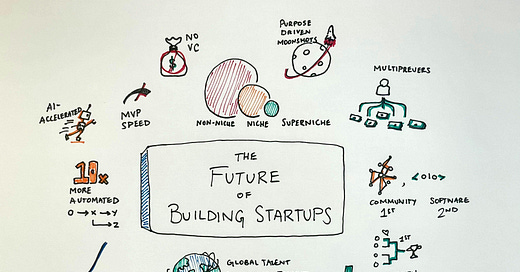 NO
VC
$
PURPOSE
DRIVEN
MOONSHOTS
MULTIPREUERS
AI-
ACCELERATED
MVP
SPEED
NON-NICHE
NICHE
SUPERNICHE
THE
FUTURE
OF
BUILDING STARTUPS
10x
MORE
AUTOMATED
O → X → Y
↳ Z
<010>
COMMUNITY
1ST
SOFTWARE
2ND
GLOBAL TALENT
1ST